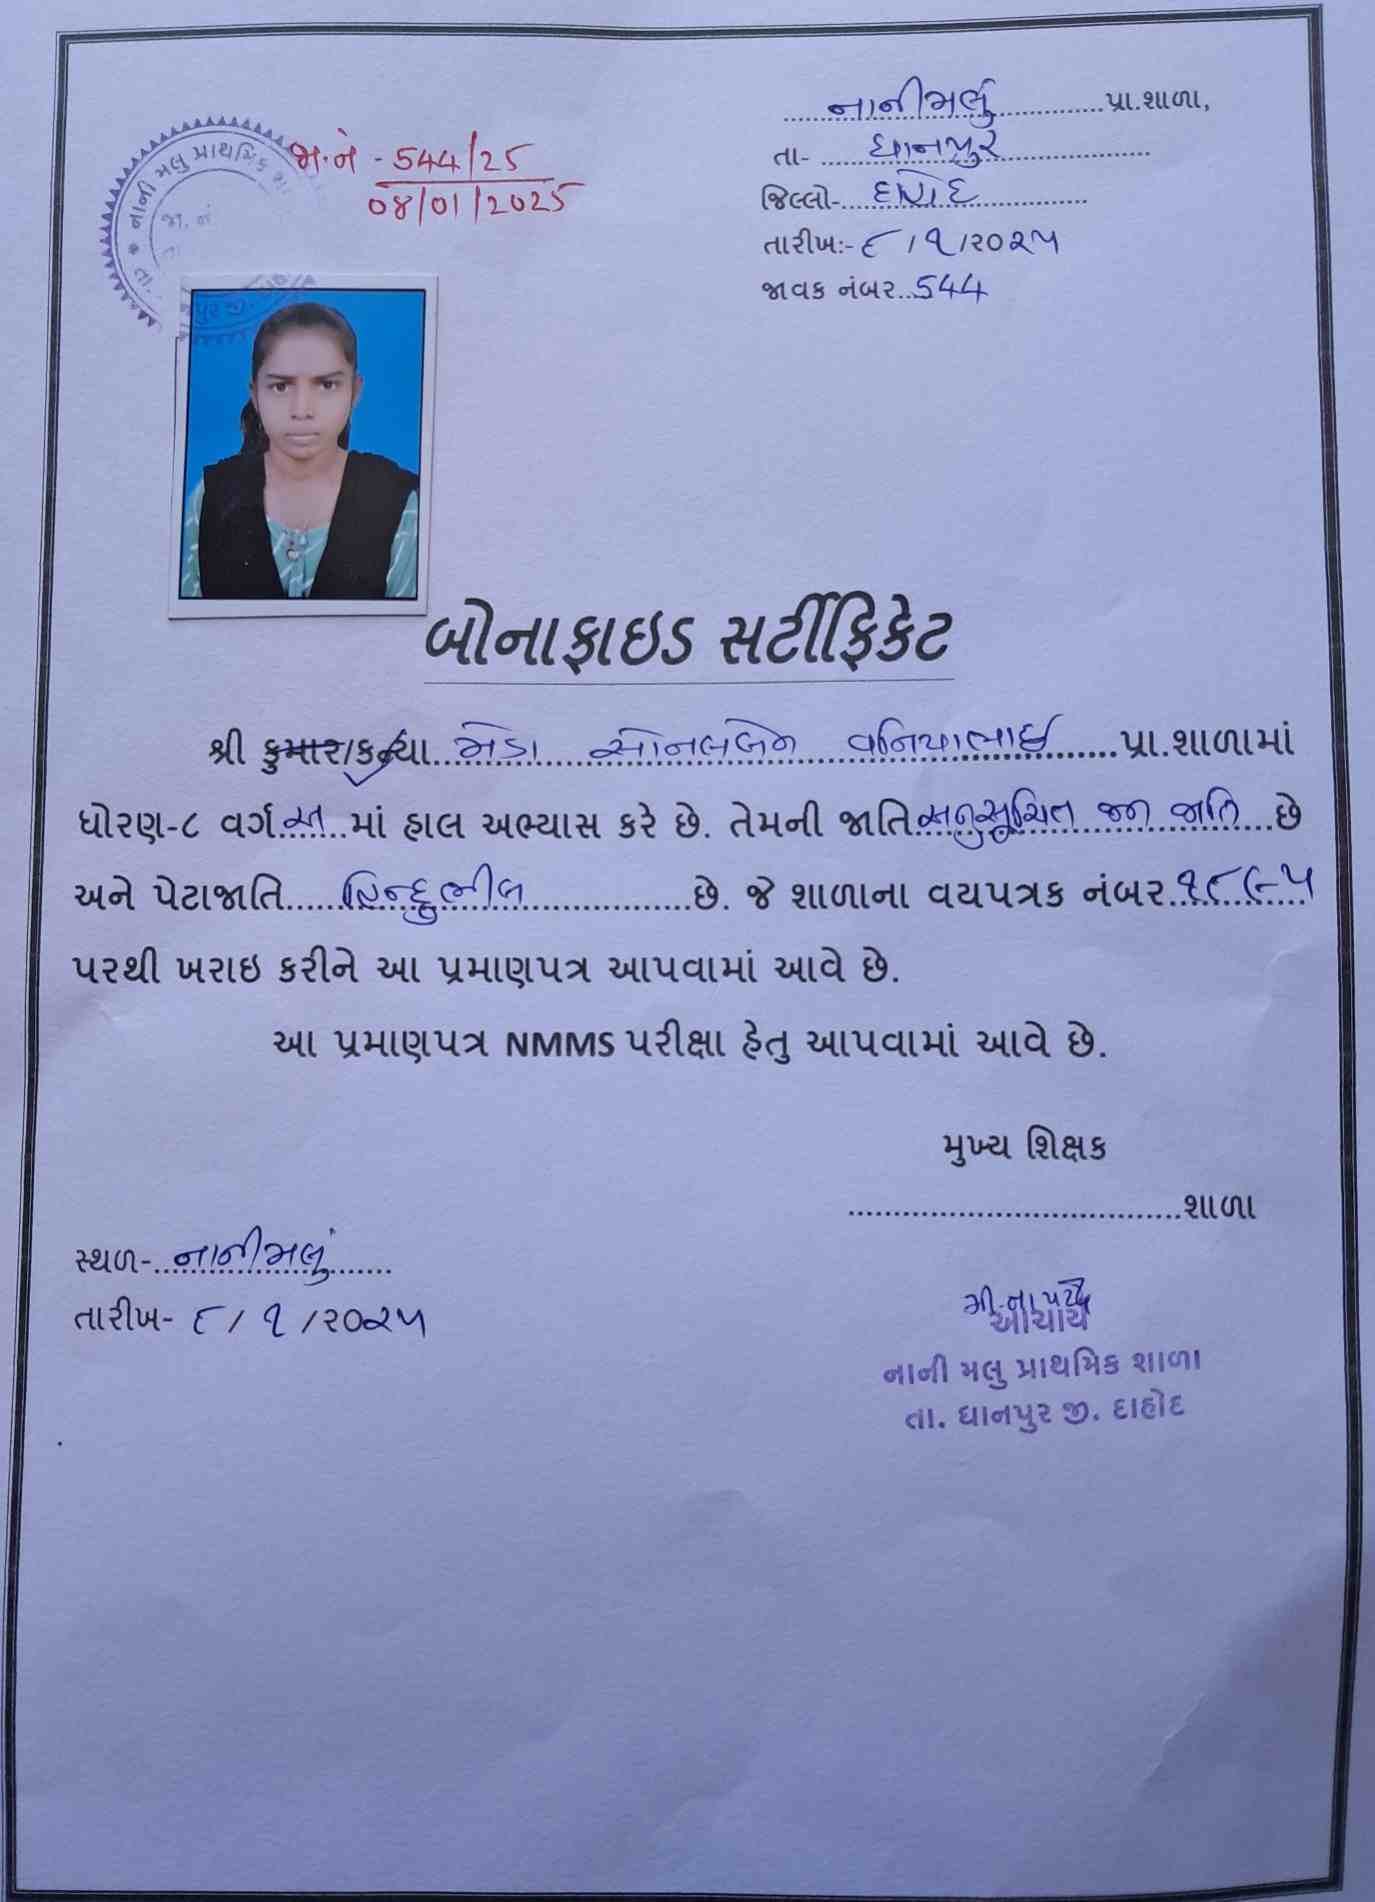 નાનીમલું પ્રા.શાળા,
તા- ધાનપુર
જિલ્લો- દાહોદ
તારીખ:- ૮/૧/૨૦૨૫
જાવક નંબર..544
નાની મલુ પ્રાથમિક શા
જા. નં
તા.
જા.નં - 544/25
08/01/2025
પુર જી.
બોનાફાઇડ સર્ટીફિકેટ
શ્રી કુમાર/કન્યા મેડા સોનલબેન વનિયાભાઈ પ્રા.શાળામાં
ધોરણ-૮ વર્ગ અ માં હાલ અભ્યાસ કરે છે. તેમની જાતિ અનુસૂચિત જન જાતિ છે
અને પેટાજાતિ હિન્દુભીલ છે. જે શાળાના વયપત્રક નંબર ૧૮૯૫
પરથી ખરાઇ કરીને આ પ્રમાણપત્ર આપવામાં આવે છે.
આ પ્રમાણપત્ર NMMS પરીક્ષા હેતુ આપવામાં આવે છે.
મુખ્ય શિક્ષક
શાળા
સ્થળ- નાનીમલું
તારીખ- ૮/૧/૨૦૨૫
આચાર્ય
નાની મલુ પ્રાથમિક શાળા
તા. ધાનપુર જી. દાહોદ